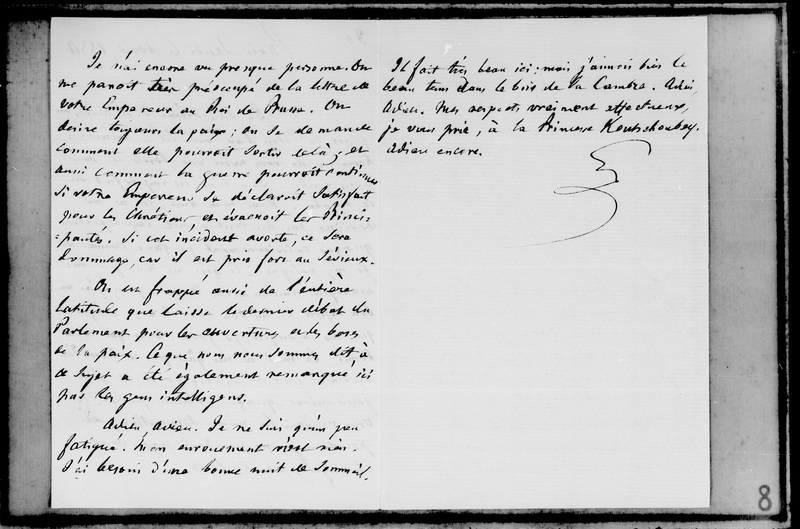 Je n'ai encore vu presque personne. On
me paroit très préoccupé de la lettre de
votre Empereur au Roi de Prusse. On
desire toujours la paix ; on se demande
comment elle pourroit sortir de là, et
aussi comment la guerre pourroit continuer
si votre Empereur se déclaroit satisfait
pour les Chrétiens et évacuoit les Princi-
=pautés. Si cet incident avorte, ce sera
dommage, car il est pris fort au sérieux.
On est frappé aussi de l'entière
latitude que laisse le dernier débat du
Parlement pour les ouvertures et les bases
de la paix. Ce que nous nous sommes dit à
ce sujet a été également remarqué ici
par les gens intelligens.
Adieu, adieu. Je ne suis qu'un peu
fatigué. Mon enrouement n'est rien.
J'ai besoin d'une bonne nuit de sommeil.
Il fait très beau ici ; mais j'aimois bien le
beau tems dans le bois de la Cambre. Adieu
Adieu. Mes respects vraiment affectueux,
je vous prie, à la Princesse Koutschoubey.
Adieu encore.
8